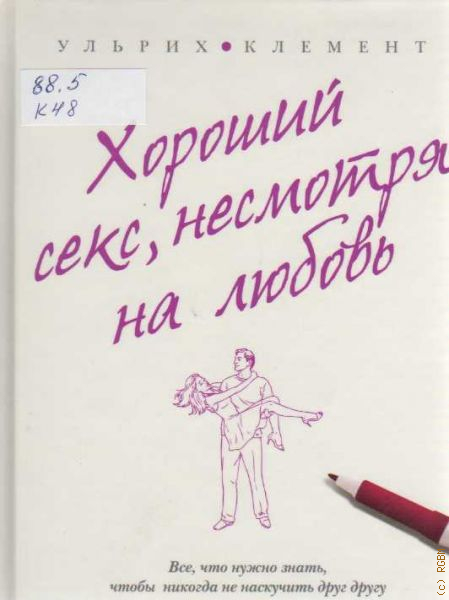 УЛЬРИХ • КЛЕМЕНТ
88.5
К48
Хороший
секс, несмотря
на любовь
Все, что нужно знать,
чтобы никогда не наскучить друг другу
(c) RGBI